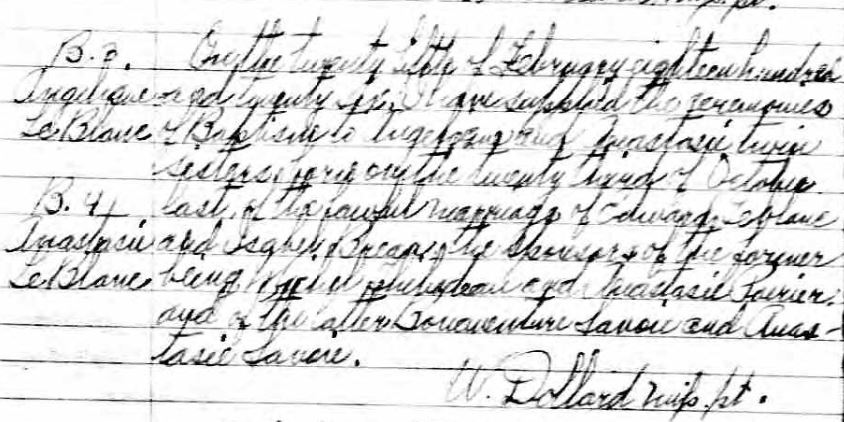 B. 3. On the twenty fifth of February eighteen hundred
Angelique and twenty six, I have supplied the ceremonies
Le Blanc of Baptism to Angelique and Anastasie twin
sisters, born on the twenty third of October
B. 4 last, of the lawful marriage of Edward Leblanc
Anastasie and Isabel, the sponsors of the former
Le Blanc being and Anastasie Poirier,
and of the latter Bonaventure Savoie and Anas-
tasie Savoie.
W. Dollard mis. pt.